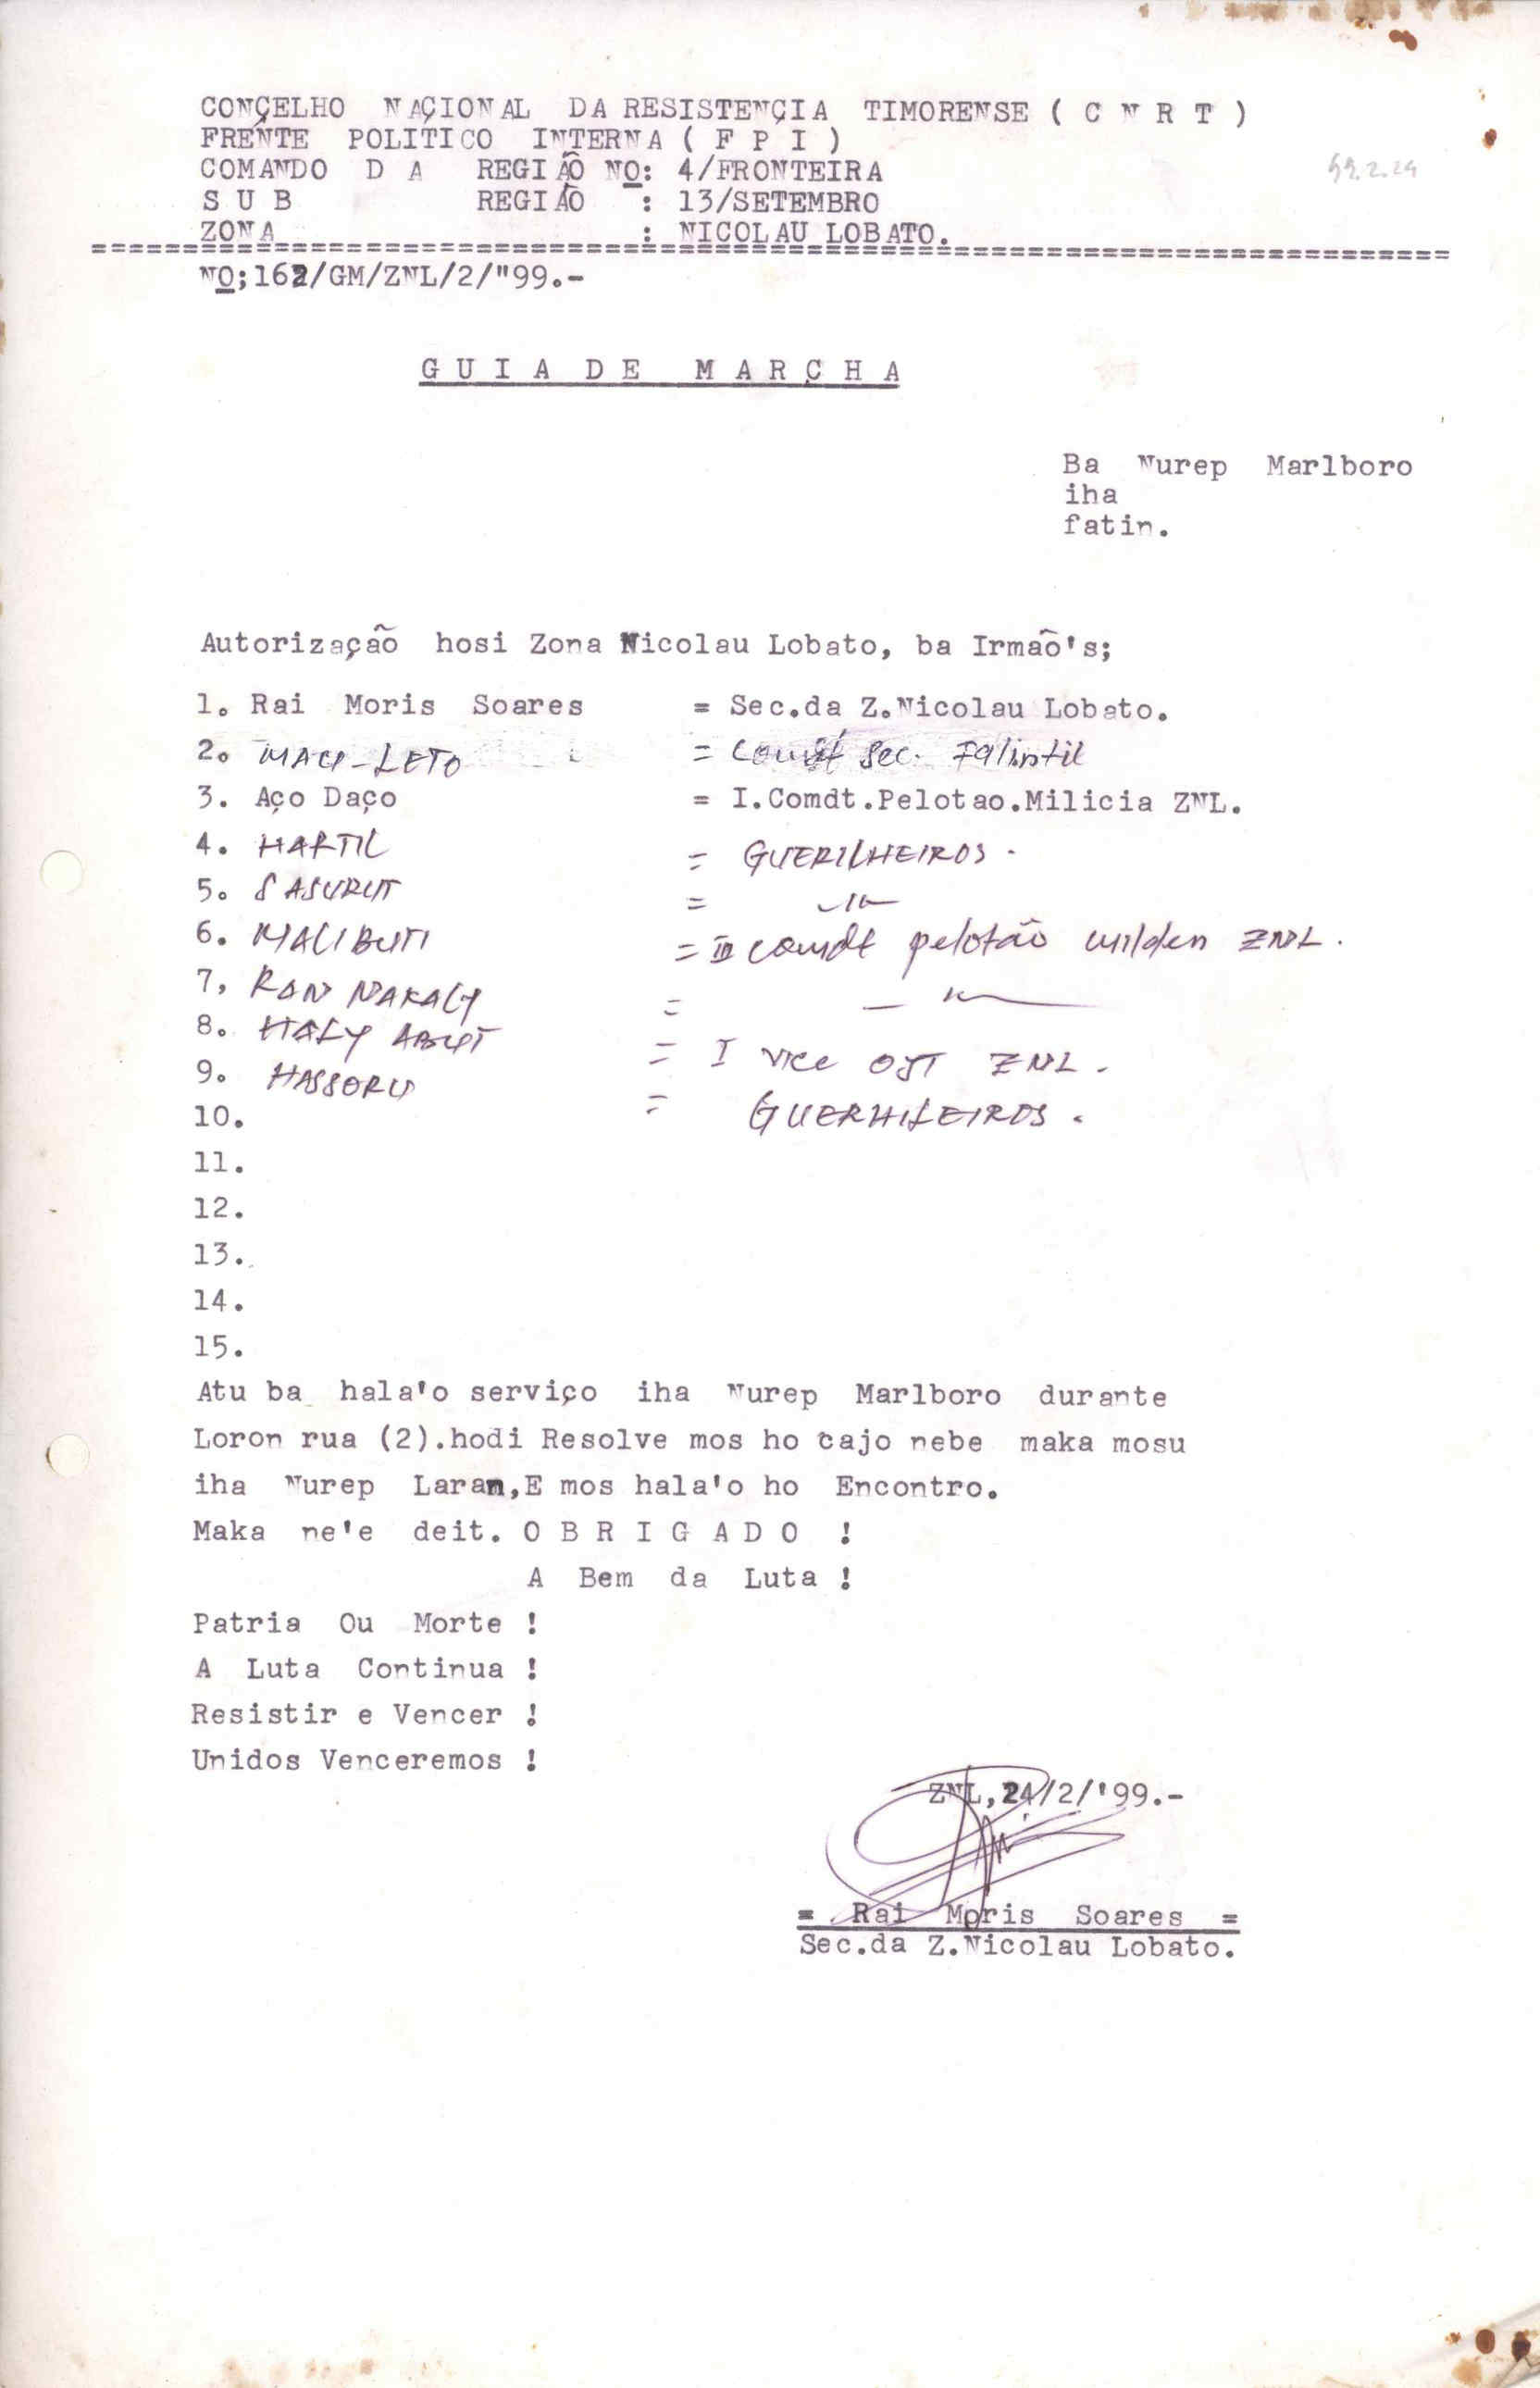 CONÇELHO NAÇIONAL DA RESISTENÇIA TIMORENSE ( C N R T )
FRENTE POLITICO INTERNA ( F P I )
COMANDO D A REGIÃO NO: 4/FRONTEIRA
S U B REGIÃO : 13/SETEMBRO
ZONA : NICOLAU LOBATO.
NO;162/GM/ZNL/2/"99.-
99.2.24
G U I A D E M A R Ç H A
Ba Nurep Marlboro
iha
fatin.
Autorização hosi Zona Nicolau Lobato, ba Irmaõ's;
1. Rai Moris Soares = Sec.da Z.Nicolau Lobato.
2. MAU-LETO = Comdt Sec. Falintil
3. Aço Daço = I.Comdt.Pelotao.Milicia ZNL.
4. HARTIL = GUERILHEIROS.
5. SASURUT =
6. MALIBUTI = III comdt pelotão ZNL.
7, RAN NAKALY = 
8. HALY ABUT = I vice OJT ZNL.
9. HASSORU = GUERHILEIROS.
10.
11.
12.
13.
14.
15.
Atu ba hala'o serviço iha Nurep Marlboro durante
Loron rua (2).hodi Resolve mos ho cajo nebe maka mosu
iha Nurep Laran,E mos hala'o ho Encontro.
Maka ne'e deit. O B R I G A D O !
A Bem da Luta !
Patria Ou Morte !
A Luta Continua !
Resistir e Vencer !
Unidos Venceremos !
ZNL,24/2/'99.-
= Rai Moris Soares =
Sec.da Z.Nicolau Lobato.